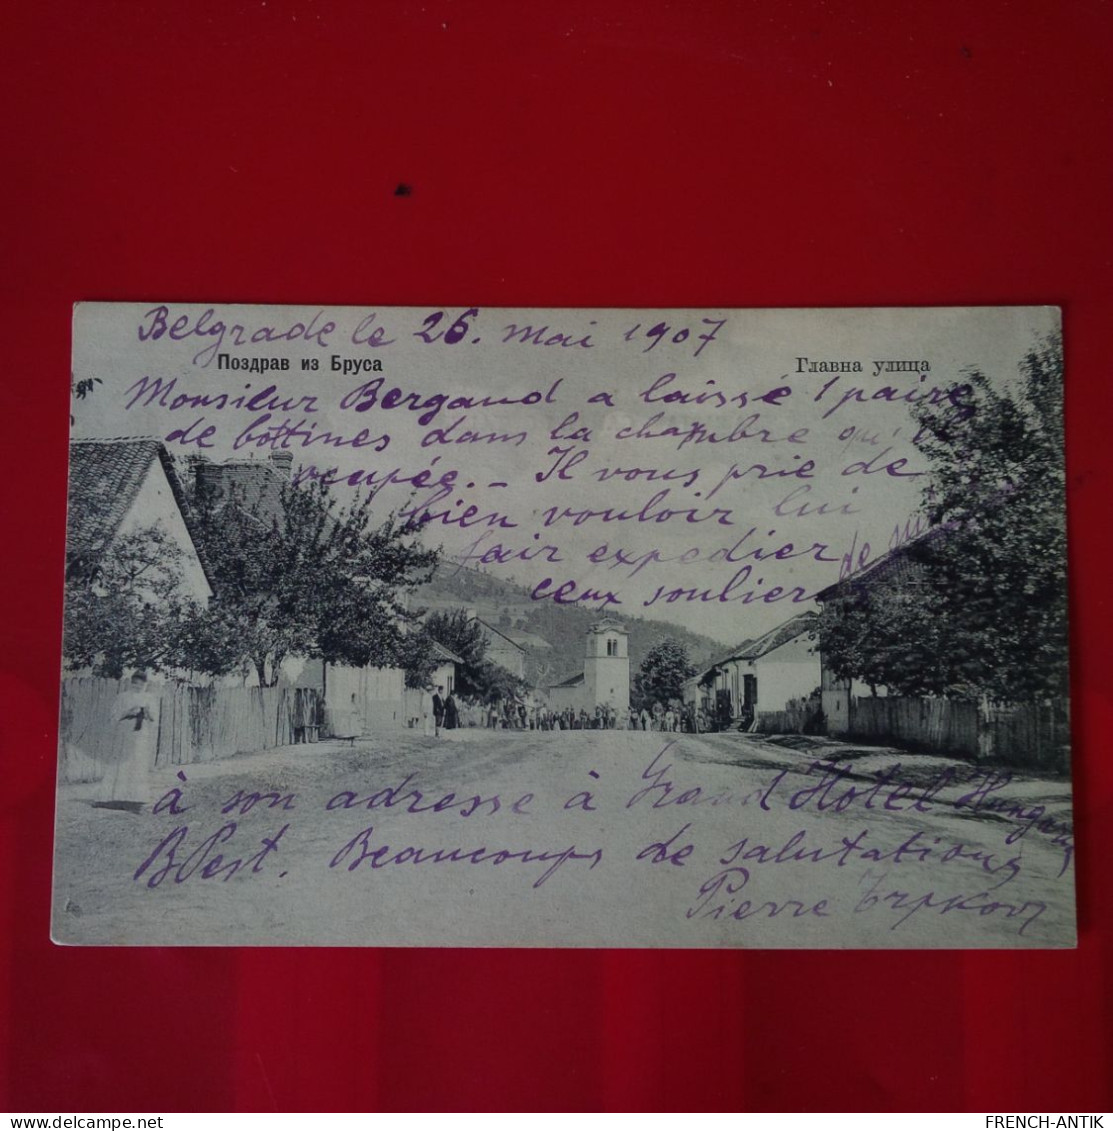 Belgrade le 26. Mai 1907
Поздрав из Бруса
Главна улица
Monsieur Bergand a laissé 1 paire
de bottines dans la chambre qu'il
ocupée. - Il vous prie de
bien vouloir lui
fair expedier de
ceux souliers
à son adresse à Grand Hotel Hungaria
BPest. Beaucoups de salutations
Pierre
FRENCH-ANTIK